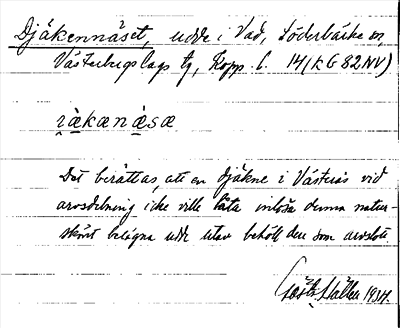 Djäkennäset, udde i Vad, Söderbärke sn,
Västerbergslags tg, Kopp. l. 14 (KG 82 NV)
i̯ǟkænǟsæ
Det berättas, att en djäkne i Västerås vid
arvsdelning icke ville låta inlösa denna natur-
skönt belägna udde utan behöll den som arvslott.
Gösta 1934.